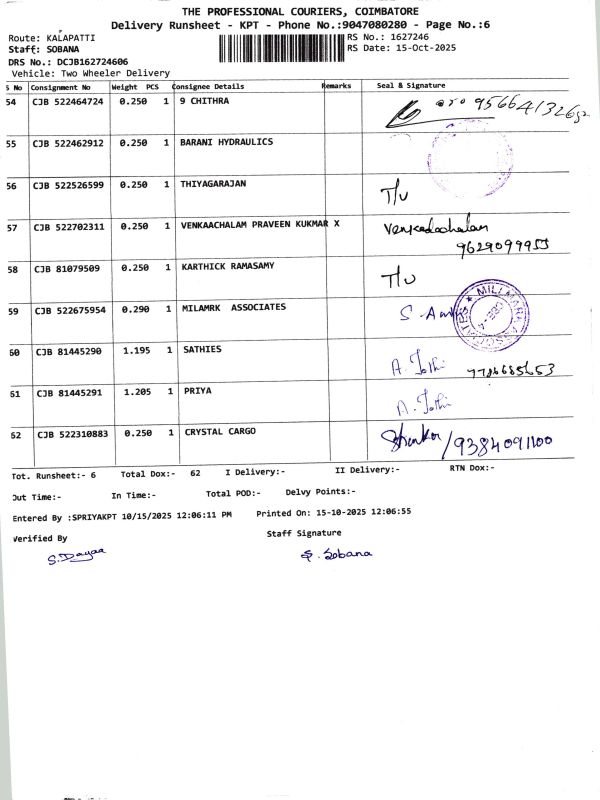 THE PROFESSIONAL COURIERS, COIMBATORE
Delivery Runsheet - KPT - Phone No.:9047080280 - Page No.:6
Route: KALAPATTI
RS No.: 1627246
Staff: SOBANA
RS Date: 15-Oct-2025
DRS No.: DCJB162724606
Vehicle: Two Wheeler Delivery
S No Consignment No Weight PCS Consignee Details Remarks Seal & Signature
54 CJB 522464724 0.250 1 9 CHITHRA
55 CJB 522462912 0.250 1 BARANI HYDRAULICS
56 CJB 522526599 0.250 1 THIYAGARAJAN T/u
57 CJB 522702311 0.250 1 VENKAACHALAM PRAVEEN KUKMAR X Venkadachalam
9629099953
58 CJB 81079509 0.250 1 KARTHICK RAMASAMY T/u
59 CJB 522675954 0.290 1 MILAMRK ASSOCIATES S.
60 CJB 81445290 1.195 1 SATHIES A. Jothi
61 CJB 81445291 1.205 1 PRIYA A. Jothi
62 CJB 522310883 0.250 1 CRYSTAL CARGO Shankar / 9384091100
Tot. Runsheet:- 6 Total Dox:- 62 I Delivery:- II Delivery:- RTN Dox:-
Out Time:- In Time:- Total POD:- Delvy Points:-
Entered By :SPRIYAKPT 10/15/2025 12:06:11 PM Printed On: 15-10-2025 12:06:55
Verified By Staff Signature
S.Dayaa S. Sobana